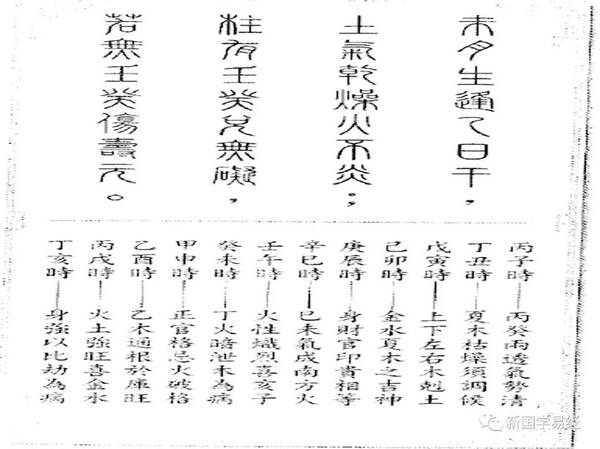 未月生逢乙日干，
土氣乾燥火不炎；
柱有壬癸免無礙，
若無壬癸傷壽元。
丙子時——丙癸兩透氣勢清
丁丑時——夏木枯燥須調候
戊寅時——上下左右木剋土
己卯時——金水夏木之吉神
庚辰時——身財官印貴相等
辛巳時——巳未氣成南方火
壬午時——火性熾烈喜亥子
癸未時——丁火暗泄木為病
甲申時——正官格忌火破格
乙酉時——乙木通根於庫旺
丙戌時——火土強旺喜金水
丁亥時——身強以比劫為病
新国学易经